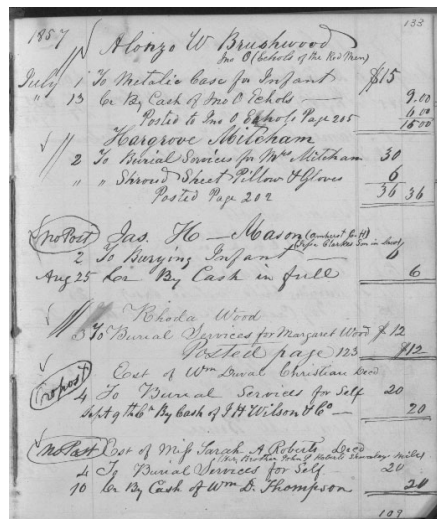 133
1857 Alonzo W Brushwood
Jno O (Echols of the Red Men)
July 1 To Metalic Case for Infant $15
" 13 Cr By Cash of Jno O Echols — 9.00
Posted to Jno O Echols Page 205 6.00
15.00
Hargrove Mitcham
2 To Burial Services for Mrs Mitcham 30
" " Shroud Sheet Pillow & Gloves 6
Posted Page 202 36 36
no Post Jas. H — Mason (Amherst C.H)
2 To Burying Infant — 6
Aug 25 Cr By Cash in full 6
Rhoda Wood
3 To Burial Services for Margaret Wood $12
Posted page 123 $12
no post Est of Wm Duval Christian Decd
4 To Burial Services for Self 20
Sept 9th Cr By Cash of J. H Wilson & Co — 20
no Post Est of Miss Sarah A Roberts Decd
Her Brother John Roberts miles
4 To Burial Services for Self 20
10 Cr By Cash of Wm D. Thompson 20
109